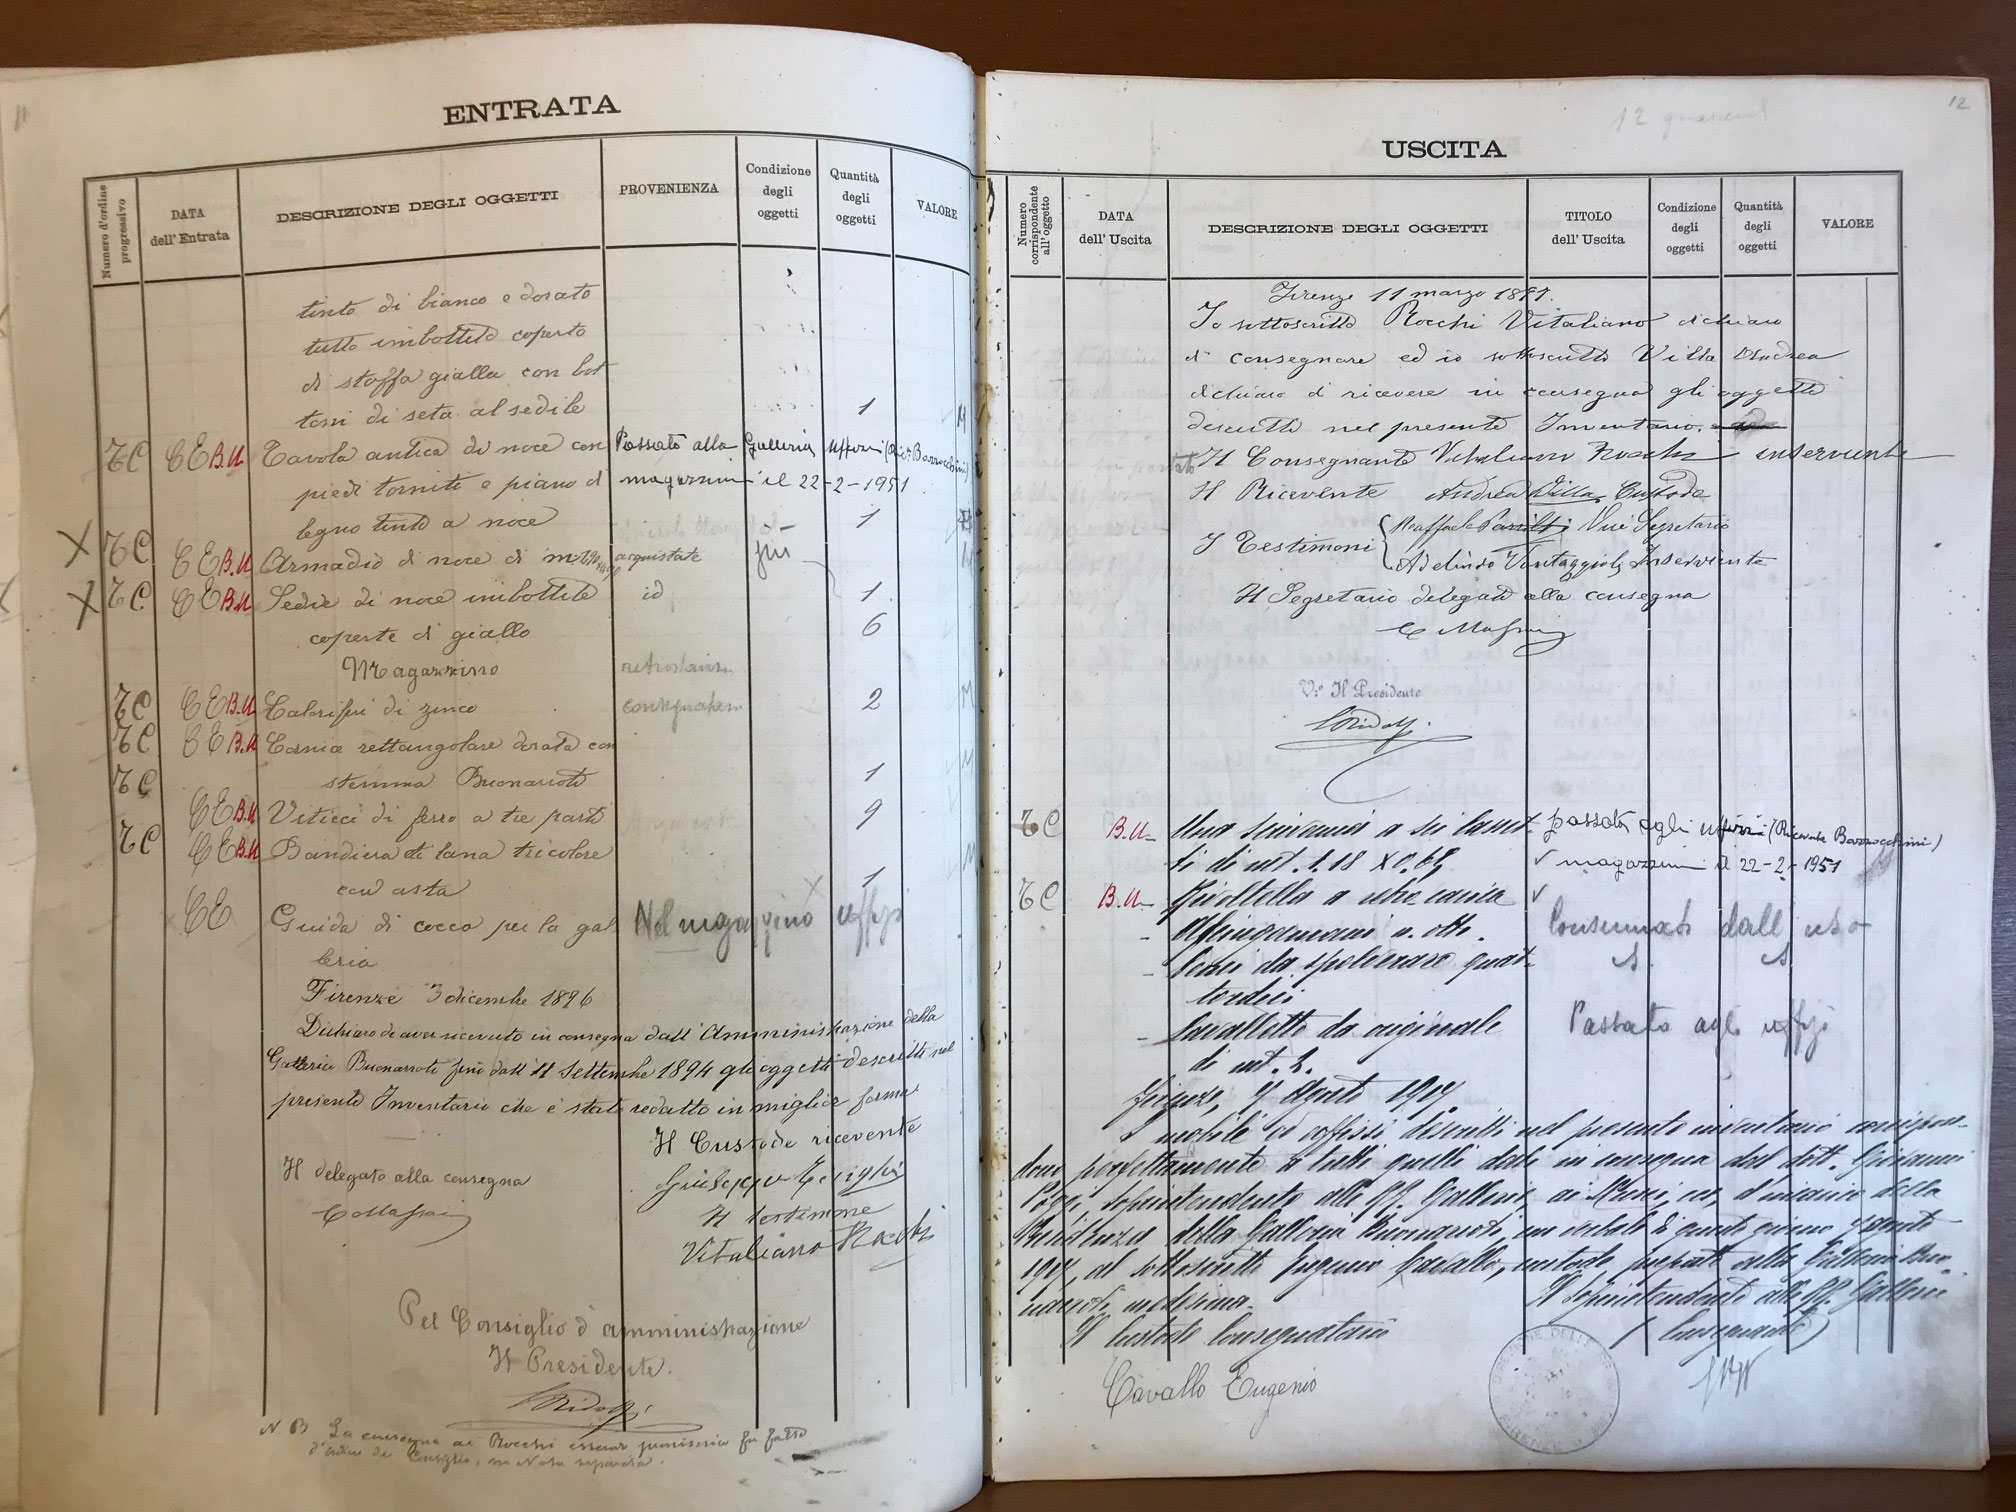 11
ENTRATA
Numero d'ordine progressivo
DATA dell'Entrata
DESCRIZIONE DEGLI OGGETTI
PROVENIENZA
Condizione degli oggetti
Quantità degli oggetti
VALORE
tinto di bianco e dorato
tutto imbottito coperto
di stoffa gialla con bot
toni di seta al sedile 1 M
TC CE B.U Tavola antica di noce con Passato alla Galleria Uffizi (Ric. Barrocchini)
piedi torniti e piano di magazzini il 22-2-1951
legno tinto a noce 1
X TC CE B.U Armadio di noce di acquistate
X TC CE B.U Sedie di noce imbottite id 1
coperte di giallo 6
Magazzino
TC CE B.U Caloriferi di zinco 2 M
TC CE B.U Cornice rettangolare dorata con
TC stemma Buonarroti 1
CE B.U Viticci di ferro a tre parti 9
TC CE B.U Bandiera di lana tricolore
con asta 1
CE Guida di cocco per la gal Nel magazzino Uffizi
leria
Firenze 3 dicembre 1896
Dichiaro di aver ricevuto in consegna dall'Amministrazione della
Galleria Buonarroti fino dall'11 Settembre 1894 gli oggetti descritti nel
presente Inventario che è stato redatto in miglior forma
Il Custode ricevente
Il delegato alla consegna
Giuseppe
Il testimone
Vitaliano Rocchi
Pel Consiglio d'amministrazione
Il Presidente.
Ridolfi
N.B. La consegna al Rocchi essendo fu fatta
d'ordine del Consiglio, in Nota separata.
12
USCITA
Numero corrispondente all'oggetto
DATA dell'Uscita
DESCRIZIONE DEGLI OGGETTI
TITOLO dell'Uscita
Condizione degli oggetti
Quantità degli oggetti
VALORE
Firenze 11 marzo 1897.
Io sottoscritto Rocchi Vitaliano dichiaro
di consegnare ed io sottoscritto Villa Andrea
dichiaro di ricevere in consegna gli oggetti
descritti nel presente Inventario.
Il Consegnante Vitaliano Rocchi inserviente
Il Ricevente Andrea Villa Custode
I Testimoni Raffaele Vice Segretario
Adelindo Vantaggioli Inserviente
Il Segretario delegato alla consegna
V.° Il Presidente
Ridolfi
TC B.U. Una scrivania a sei casset- passata agli Uffizi (Ricevuta Barrocchini)
ti di mt. 1.18 X 0.69 magazzini il 22-2-1951
TC B.U. Rivoltella a retrocarica
Asciugamani n. otto. Consumati dall'uso
Cenci da spolverare quat-
tordici
Cavalletto da originale Passato agli Uffizi
di mt. 2.
Firenze, 9 Agosto 1917
I mobili ed affissi descritti nel presente inventario corrispon-
dono perfettamente a tutti quelli dati in consegna dal dott. Giovanni
Poggi, soprintendente alle RR. Gallerie, ai Musei, ecc., d'incarico della
Presidenza della Galleria Buonarroti, questo giorno 9 agosto
1917, al sottoscritto Eugenio Cavallo, custode preposto alla Galleria Buo-
narroti medesima.
Il Soprintendente alle RR. Gallerie
Il Custode Consegnatario
(Consegnante)
Cavallo Eugenio